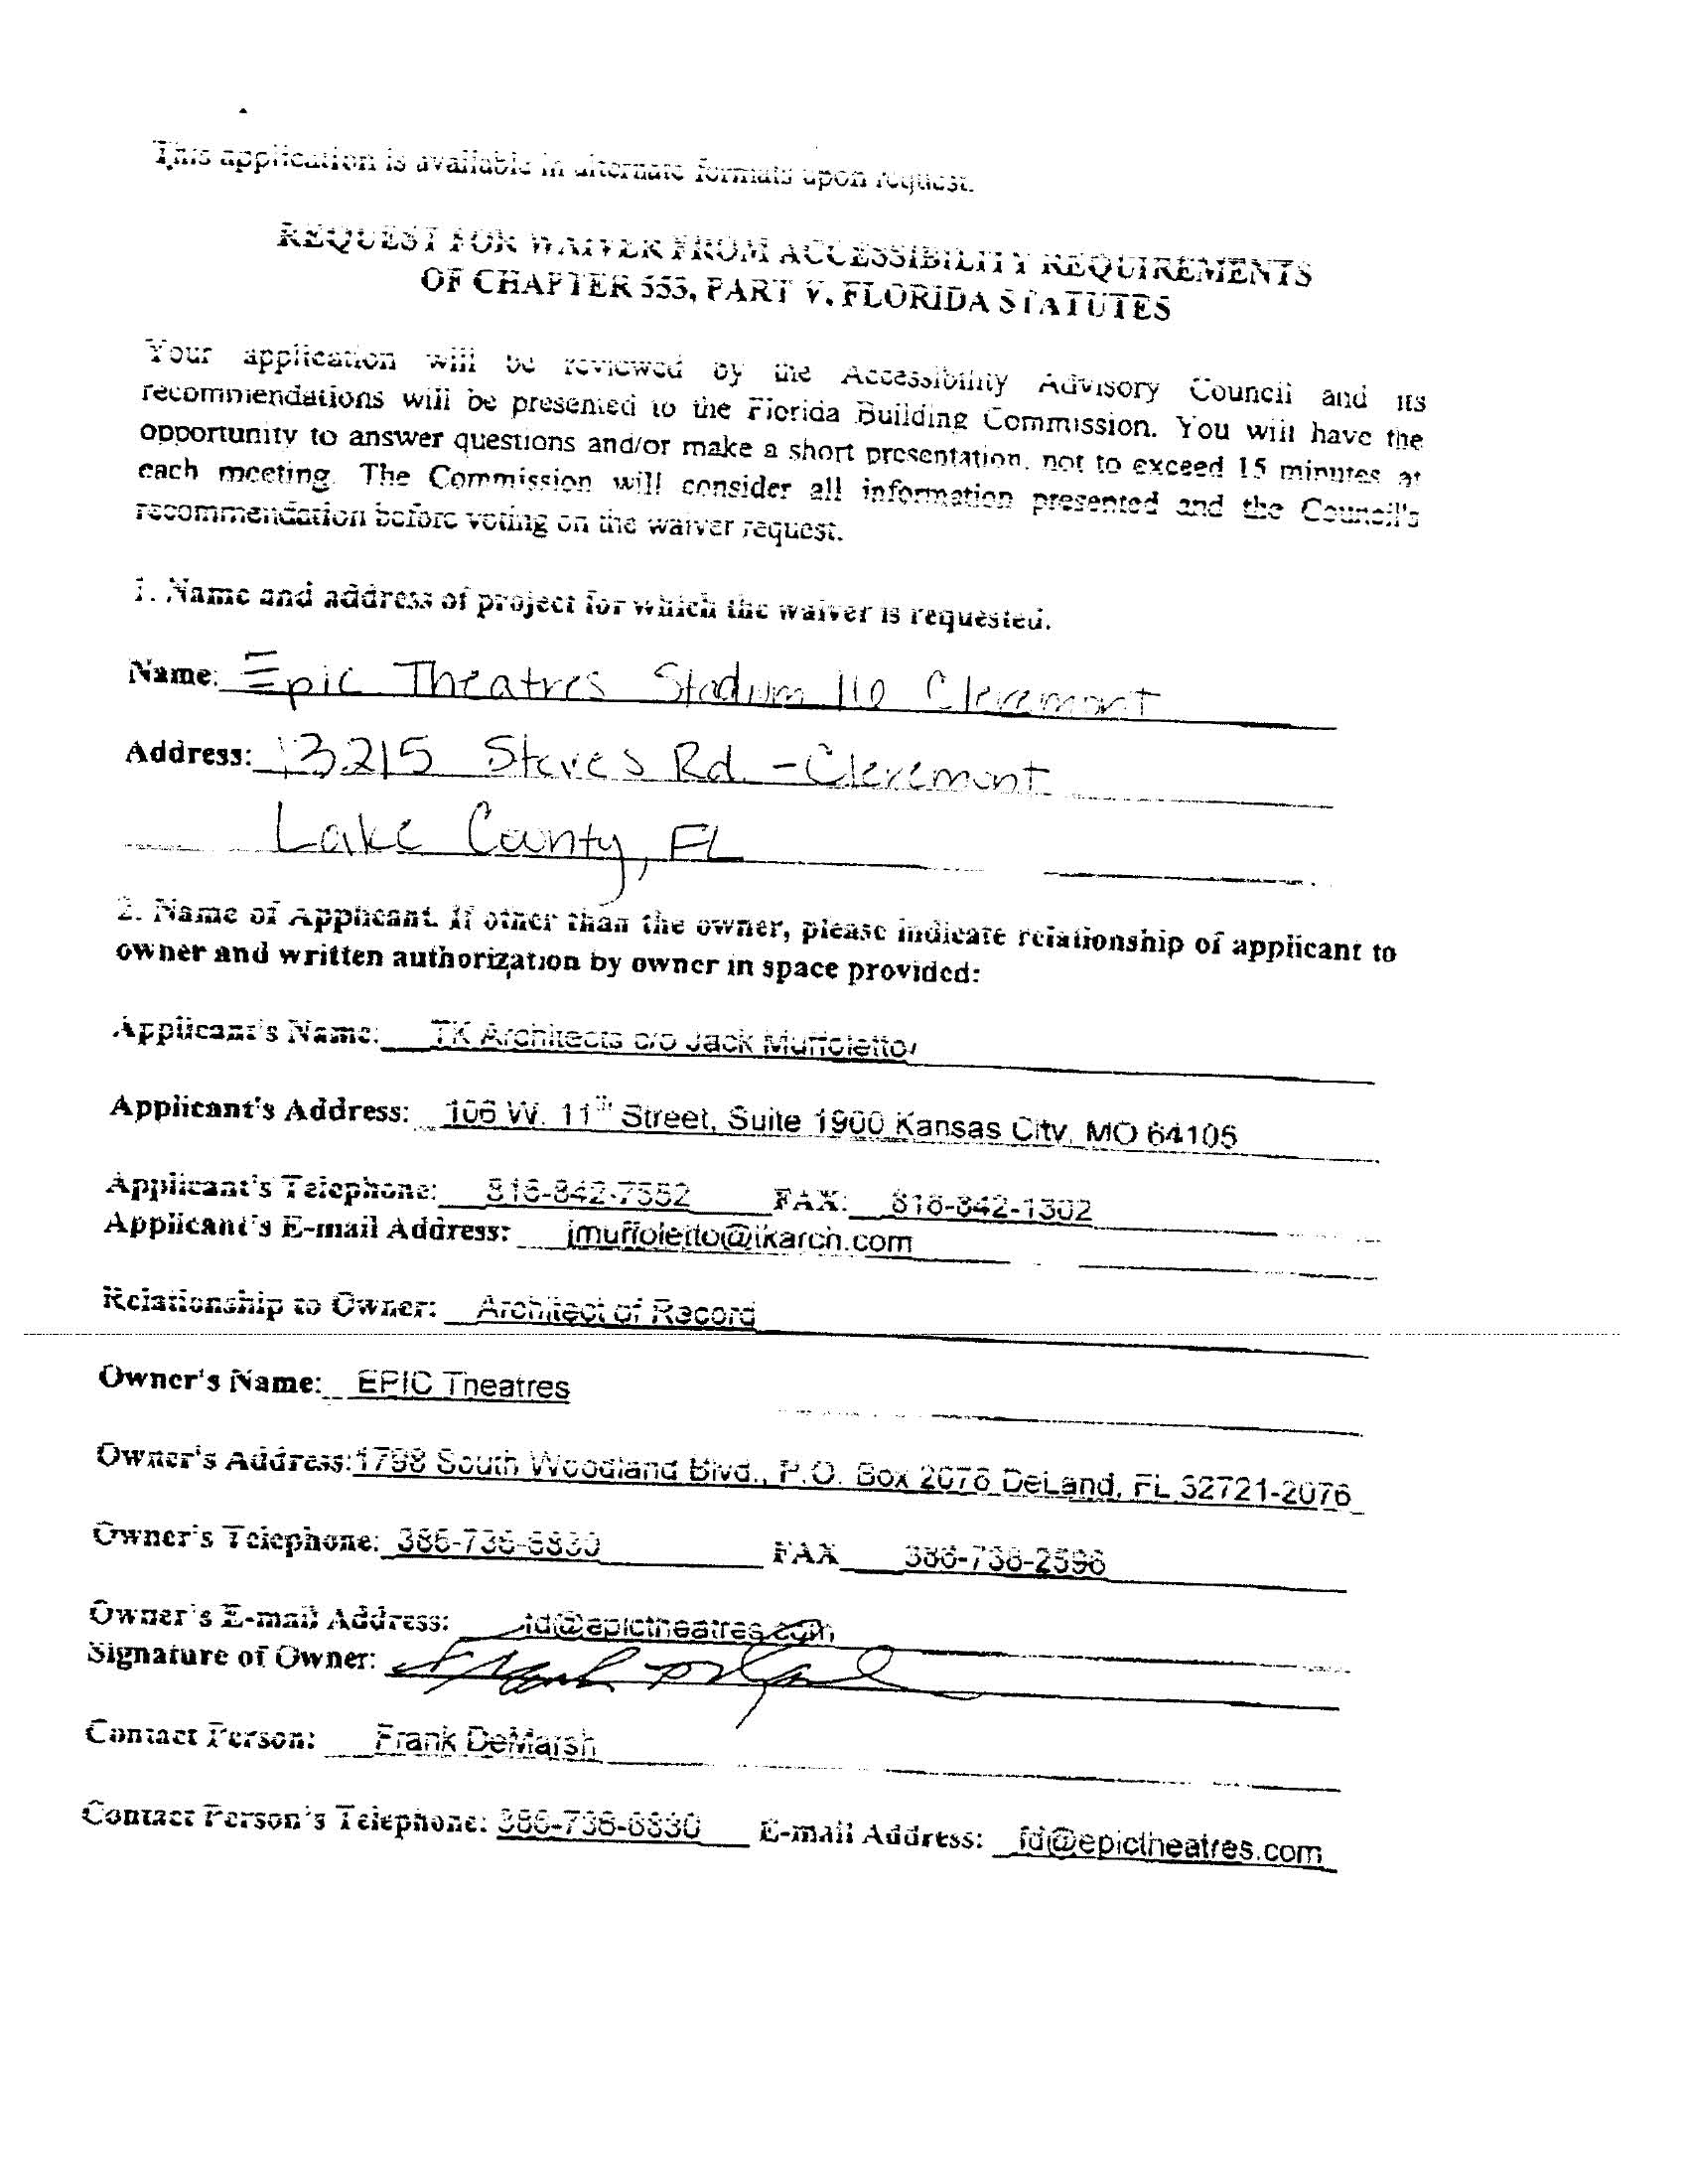 This application is available in alternate formats upon request.
REQUEST FOR WAIVER FROM ACCESSIBILITY REQUIREMENTS
OF CHAPTER 553, PART V, FLORIDA STATUTES
Your application will be reviewed by the Accessibility Advisory Council and its
recommendations will be presented to the Florida Building Commission. You will have the
opportunity to answer questions and/or make a short presentation, not to exceed 15 minutes at
each meeting. The Commission will consider all information presented and the Council's
recommendation before voting on the waiver request.
1. Name and address of project for which the waiver is requested.
Name: Epic Theatres Stadium Cleremont
Address: 13215 Steve's Rd. - Cleremont
Lake County, FL
2. Name of Applicant. If other than the owner, please indicate relationship of applicant to
owner and written authorization by owner in space provided:
Applicant's Name: TK Architects c/o Jack Muffoletto
Applicant's Address: 106 W. 11th Street, Suite 1900 Kansas City, MO 64105
Applicant's Telephone: 816-842-7552 FAX: 816-842-1302
Applicant's E-mail Address: jmuffoletto@tkarch.com
Relationship to Owner: Architect of Record
Owner's Name: EPIC Theatres
Owner's Address: 1798 South Woodland Blvd., P.O. Box 2076 DeLand, FL 32721-2076
Owner's Telephone: 386-736-6830 FAX 386-738-2596
Owner's E-mail Address: fd@epictheatres.com
Signature of Owner:
Contact Person: Frank DeMarsh
Contact Person's Telephone: 386-736-6830 E-mail Address: fd@epictheatres.com